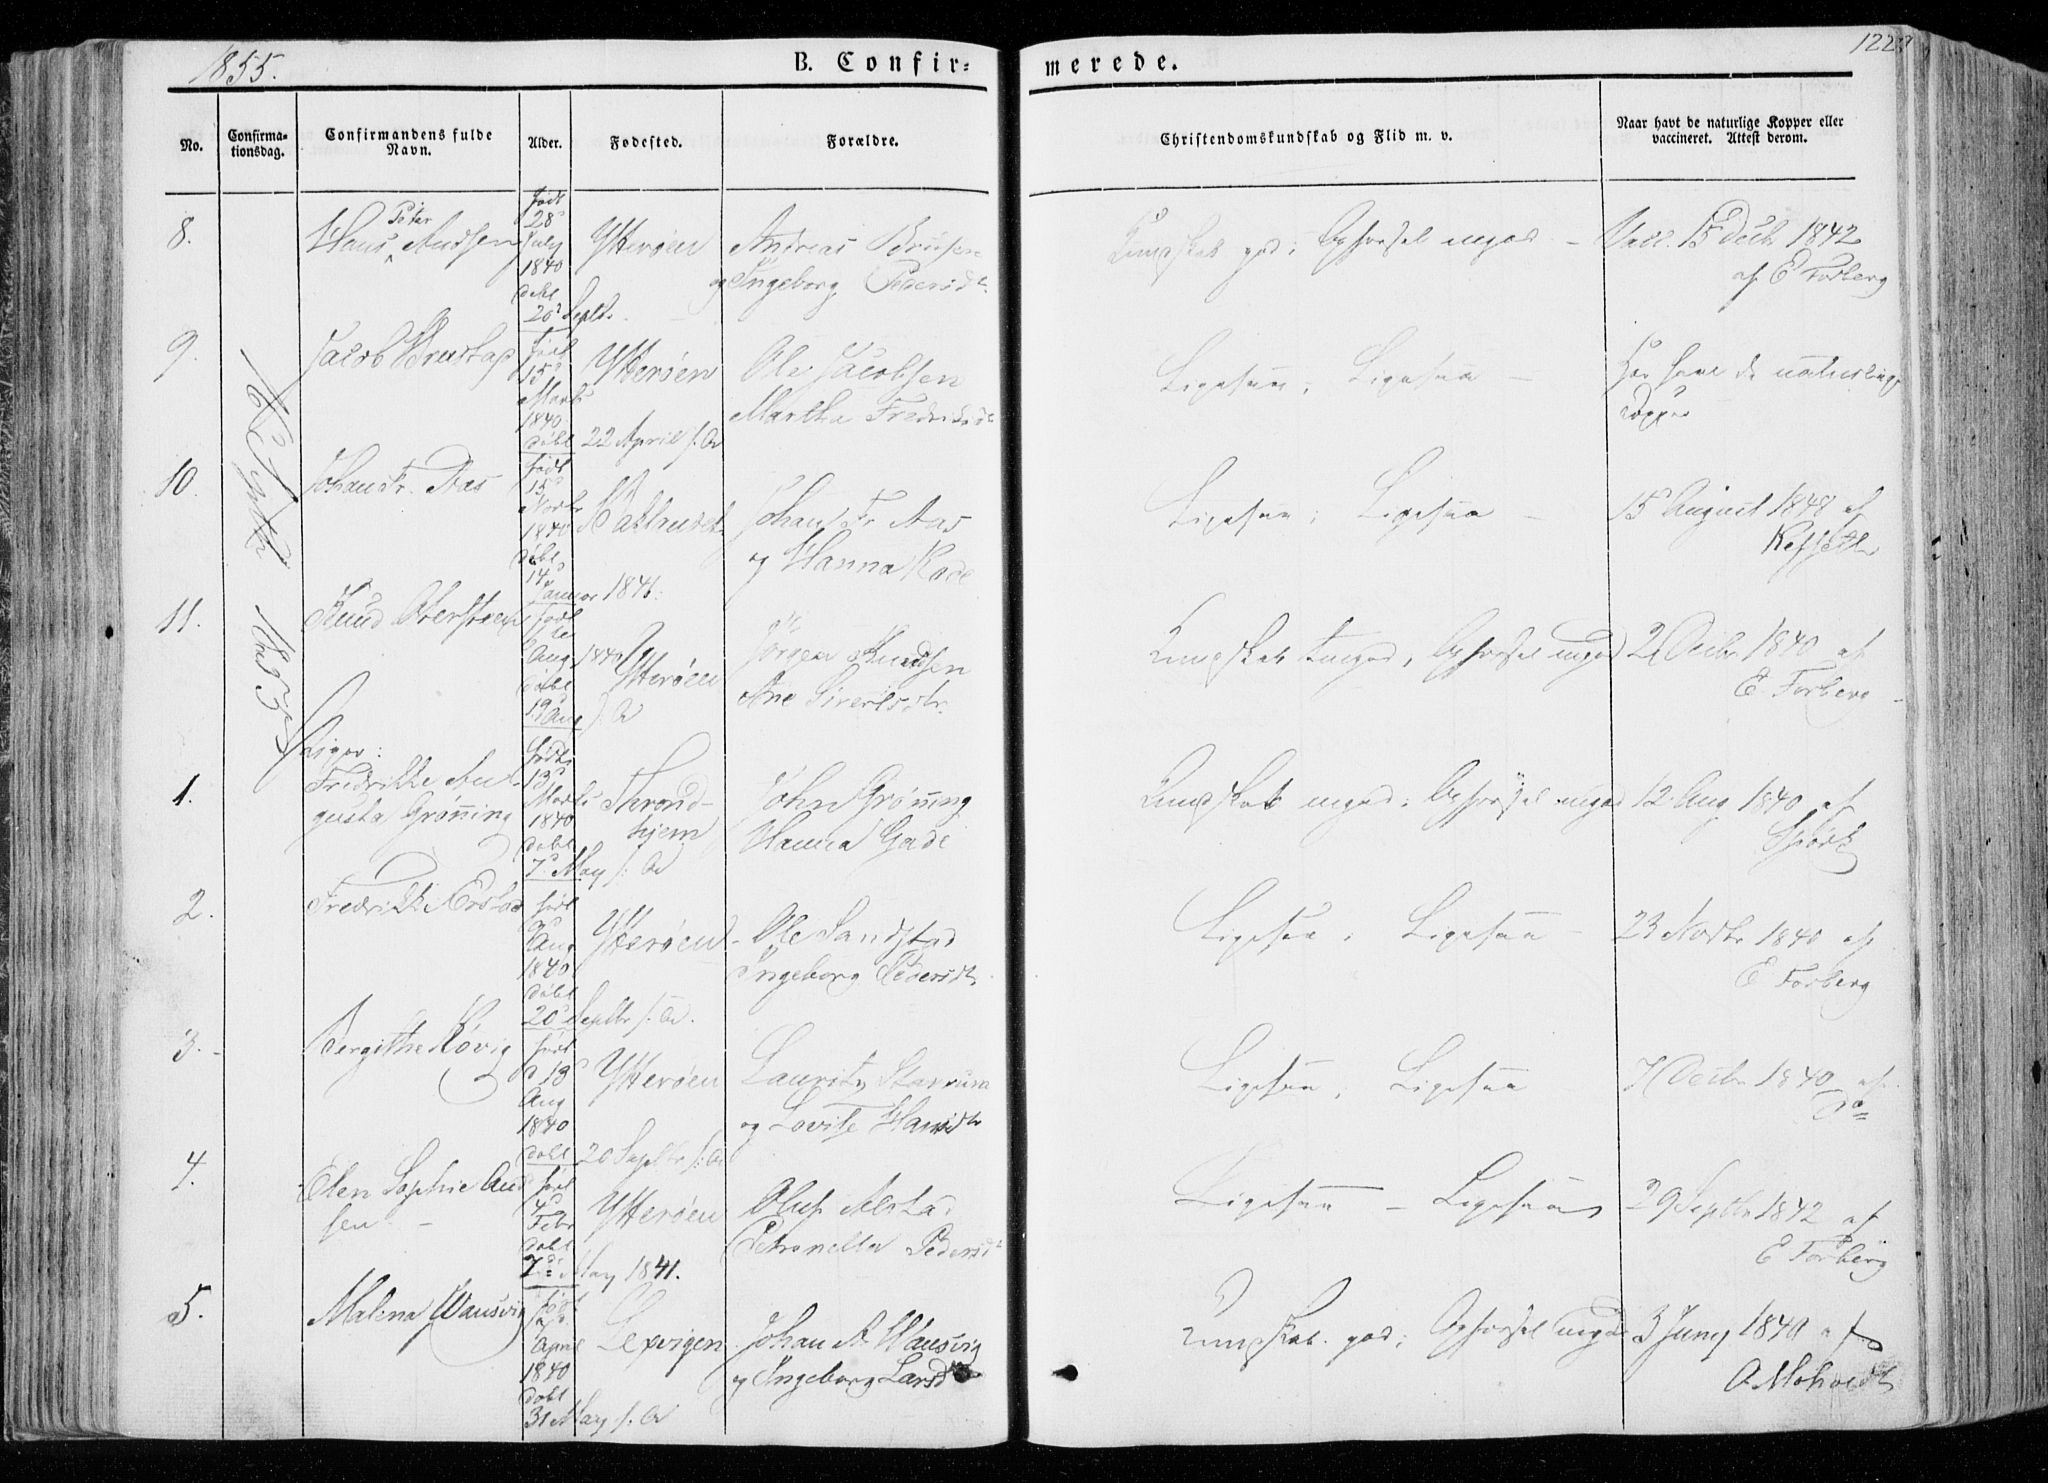 1855.
B. Confir-
merede.
122
No.
Confirma-
tionsdag.
Confirmandens fulde
Navn.
Alder.
Fødested.
Forældre.
Christendomskundskab og Flid m. v.
Naar havt de naturlige Kopper eller
vaccineret. Attest derom.
8.
Hans Peter Andsen
født
28
July
1840
døbt
20 Septr.
Ytterøen
Andreas
og Ingeborg Pedersdr.
Kundskab god; Opførsel mgod
Vacc. 15 Decbr 1842
af E Forberg
9.
Jacob
født
15
Marts
1840
døbt 22 April s. A
Ytterøen
Ole Jacobsen
Martha Fredriksdr
Ligesaa; Ligesaa
Har havt de naturlige
Kopper
10.
Johan Fr. Aas
født
15
Novbr
1840
døbt
14
Januar 1841.
Johan Fr Aas
og Hanna Rode
Ligesaa; Ligesaa
15 August 1848 af
11.
Knud
født
Aug 1840
døbt
19 Aug s. A
Ytterøen
Jørgen Knudsen
Ane Sivertsdr.
Kundskab tmgod, Opførsel mgod
2 Decbr 1840 af
E. Forberg
Septbr 1855
Piger:
1.
Fredrikke Au-
gusta Grønning
født
13
Marts
1840
døbt
7 May s. A
Thrond-
hjem
John Grønning
Hanna Gade
Kundskab mgod; Opførsel mgod
12 Aug 1840 af
Spørk
2.
Fredrikke
født
Aug
1840
døbt
20 Septbr s. A.
Ytterøen
Ole Sandstad
Ingeborg Pedersdr
Ligesaa; Ligesaa
23 Novbr 1840 af
E Forberg
3.
Bergithe Røvig
født
13
Aug
1840
døbt 20 Septbr s. A
Ytterøen
Lauritz Stavrum
og Lovise Hansdr
Ligesaa; Ligesaa
7 Decbr 1840 af
Do
4.
Elen Sophie And
sen
født
4
Febr
døbt
7de May 1841.
Ytterøen
Oluf Alstad
Petronella Pedersdr
Ligesaa - Ligesaa
29 Septbr 1842 af
E Forberg
5.
Malena Wansvig
født
April
1840
døbt
31 May s. A
Lexvigen
Johan A. Wansvig
og Ingeborg Larsd
Kundskab god; Opførsel mgod
3 Juny 1840 af